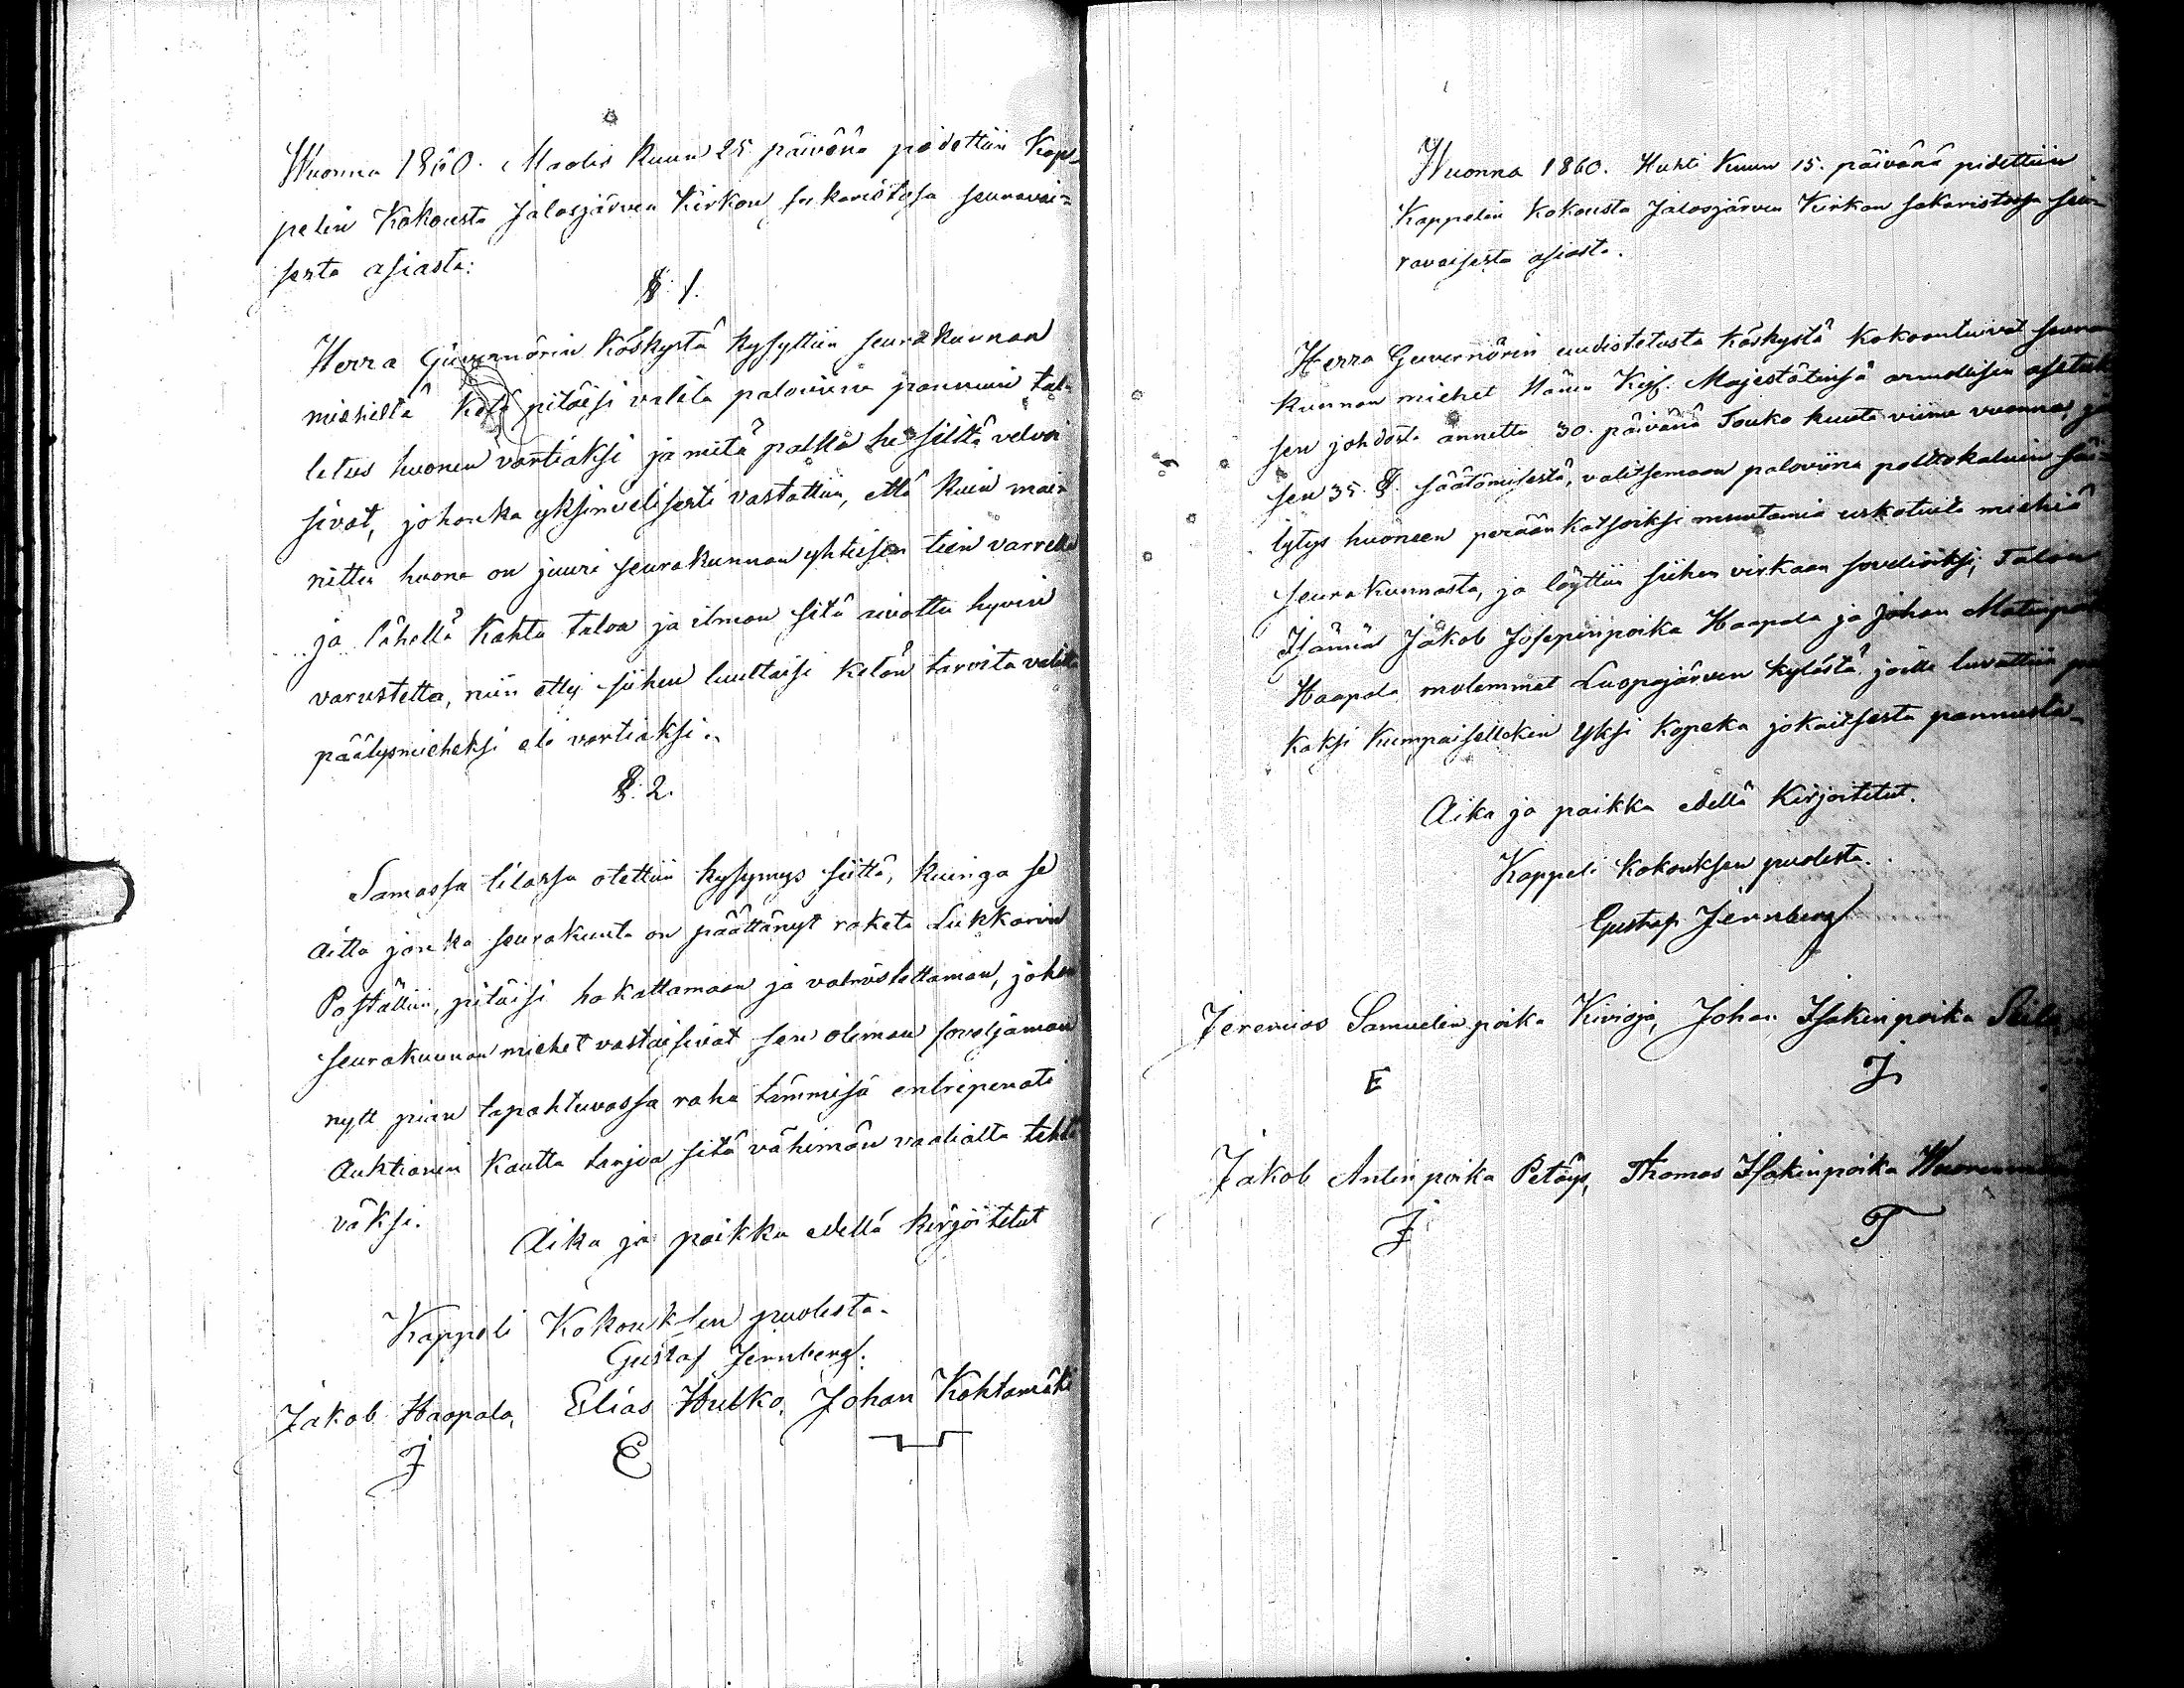 Wuonna 1860. Maalis Kuun 25 päivänä pidettiin Kap-
pelin Kokousta Jalasjärven Kirkon sakaristosa seuravai=
sesta asiasta:
§ 1.
Herra Guvernörin Käskystä kysyttiin seurakunnan
miehiltä Ketä pitäisi valita paloviina pannuin tal-
letus huonen vartiaksi ja mitä palkka he siittä velvoi
sivat, johonka yksimielisesti vastattiin, että kuin mai-
nittu huone on juuri seurakunnan yhteisen tien varrella
ja lähellä Kahta taloa ja ilman sitä aivotta hyvin
varustetta, niin ettei siihen luultaisi Ketän tarvita valitta
päälysmieheksi eli vartiaksi.
§. 2.
Samassa tilassa otettiin kysymys siittä, kuinga se
Aitta jonka seurakunta on päättänyt raketa Lukkarin
Poställiin, pitäisi hakattamaan ja valmistettaman, johon
seurakunnan miehet vastaisivat sen oleman soveljaman
nytt pian tapahtuvassa raha tämmisä entripenati
Auktionin Kautta tarjoa sitä vähimän vaatialta tehtä
väksi.
Aika ja paikka edellä kirjoitetut
Kappeli Kokouksen puolesta.
Gustaf Jernberg.
Jakob Haapala, Elias Hulko, Johan Kohtamäki
J E
Wuonna 1860. Huhti Kuun 15. päivänä pidettiin
Kappelin Kokousta Jalasjärven Kirkon sakaristossa seu-
ravaisesta asiasta.
Herra Guvernörin uudistetusta Käskystä Kokoontuivat seura
kunnan miehet Hänen Keis. Majestätinsä armollisen asetuk
sen johdosta annettu 30. päivänä Touko kuuta viime vuonna ja
sen 35. §. säätämisestä, valitsemaan paloviina polttokaluin säi-
lytys huoneen peräänkatsoiksi muutamia uskotuita miehiä
seurakunnasta, ja löyttiin siihen virkaan soveliaiksi; Talon
Isännät Jakob Josepinpoika Haapala ja Johan Matinpoi
Haapala molemmat Luopajärven kylästä joille luvattiin pal
kaksi kumpaisellekin yksi Kopeka jokaitsesta pannusta.
Aika ja paikka edellä Kirjoitetut.
Kappeli Kokouksen puolesta.
Gustaf Jernberg
Jeremias Samuelin poika Kivioja, Johan Isakin poika Seila
E J
Jakob Antin poika Petäys, Thomas Isakinpoika
J T